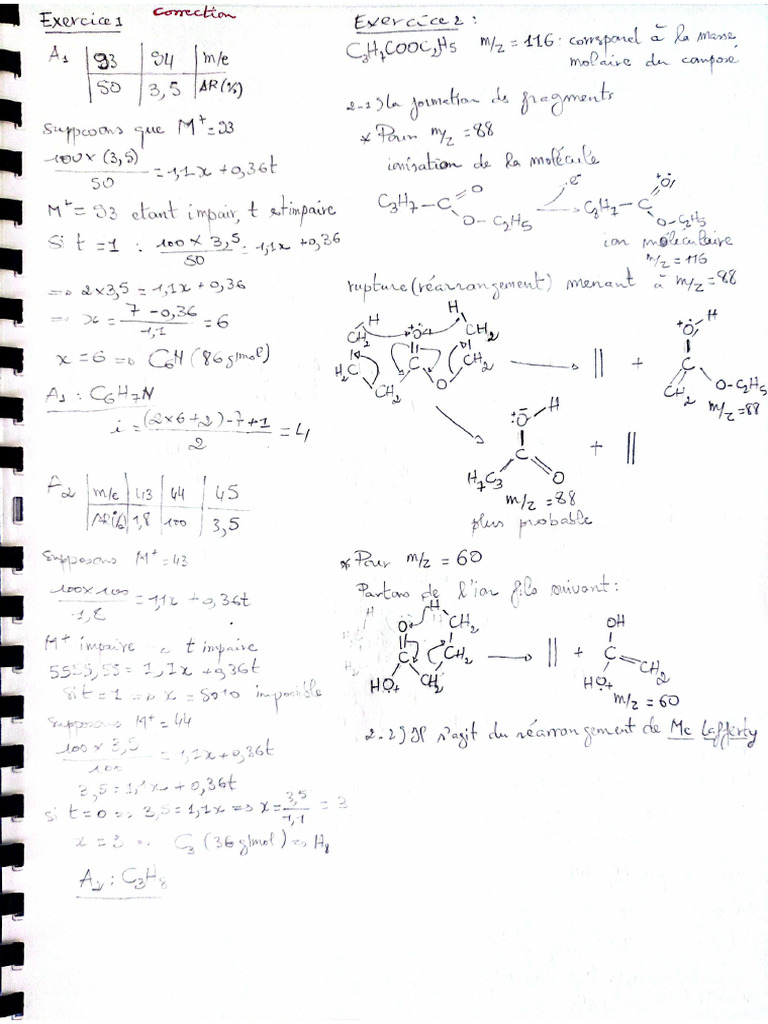 Exercice 1 Correction
A1 | 93 | 94 | m/e
50 | 3,5 | AR(%)
supposons que M+ = 93
100 x (3,5) / 50 = 1,1x + 0,36t
M+ = 93 etant impair, t est impaire
Si t = 1 : 100 x 3,5 / 50 = 1,1x + 0,36
=> 2x3,5 = 1,1x + 0,36
=> x = 7 - 0,36 / 1,1 = 6
x = 6 => C6H (86 g/mol)
A1 : C6H7N
i = (2x6+2)-7+1 / 2 = 4
A2 | m/e | 43 | 44 | 45
AR% | 1,8 | 100 | 3,5
supposons M+ = 43
100x100 / 1,8 = 1,1x + 0,36t
M+ impaire t impaire
5555,55 = 1,1x + 0,36t
Si t = 1 => x = 5010 impossible
supposons M+ = 44
100 x 3,5 / 100 = 1,1x + 0,36t
3,5 = 1,1x + 0,36t
si t = 0 => 3,5 = 1,1x => x = 3,5 / 1,1 = 3
x = 3 => C3 (36 g/mol) => H8
A2 : C3H8
Exercice 2 :
C3H7COOC2H5 m/z = 116 : correspond à la masse
molaire du composé
2-1) la formation des fragments
* Pour m/z = 88
ionisation de la molécule
C3H7 - C O O - C2H5 e- C3H7 - C O O - C2H5
ion moléculaire
m/z = 116
rupture (réarrangement) menant à m/z = 88
H H
CH2 O CH2 O H
H2C C CH2 + C
CH2 O CH2 O-C2H5
m/z = 88
O H
C +
H7C3 O
m/z = 88
plus probable
* Pour m/z = 60
Partons de l'ion fils suivant :
H
O CH2 OH
C CH2 + C CH2
HO+ CH2 HO+
m/z = 60
2-2) Il s'agit du réarrangement de Mc Lafferty